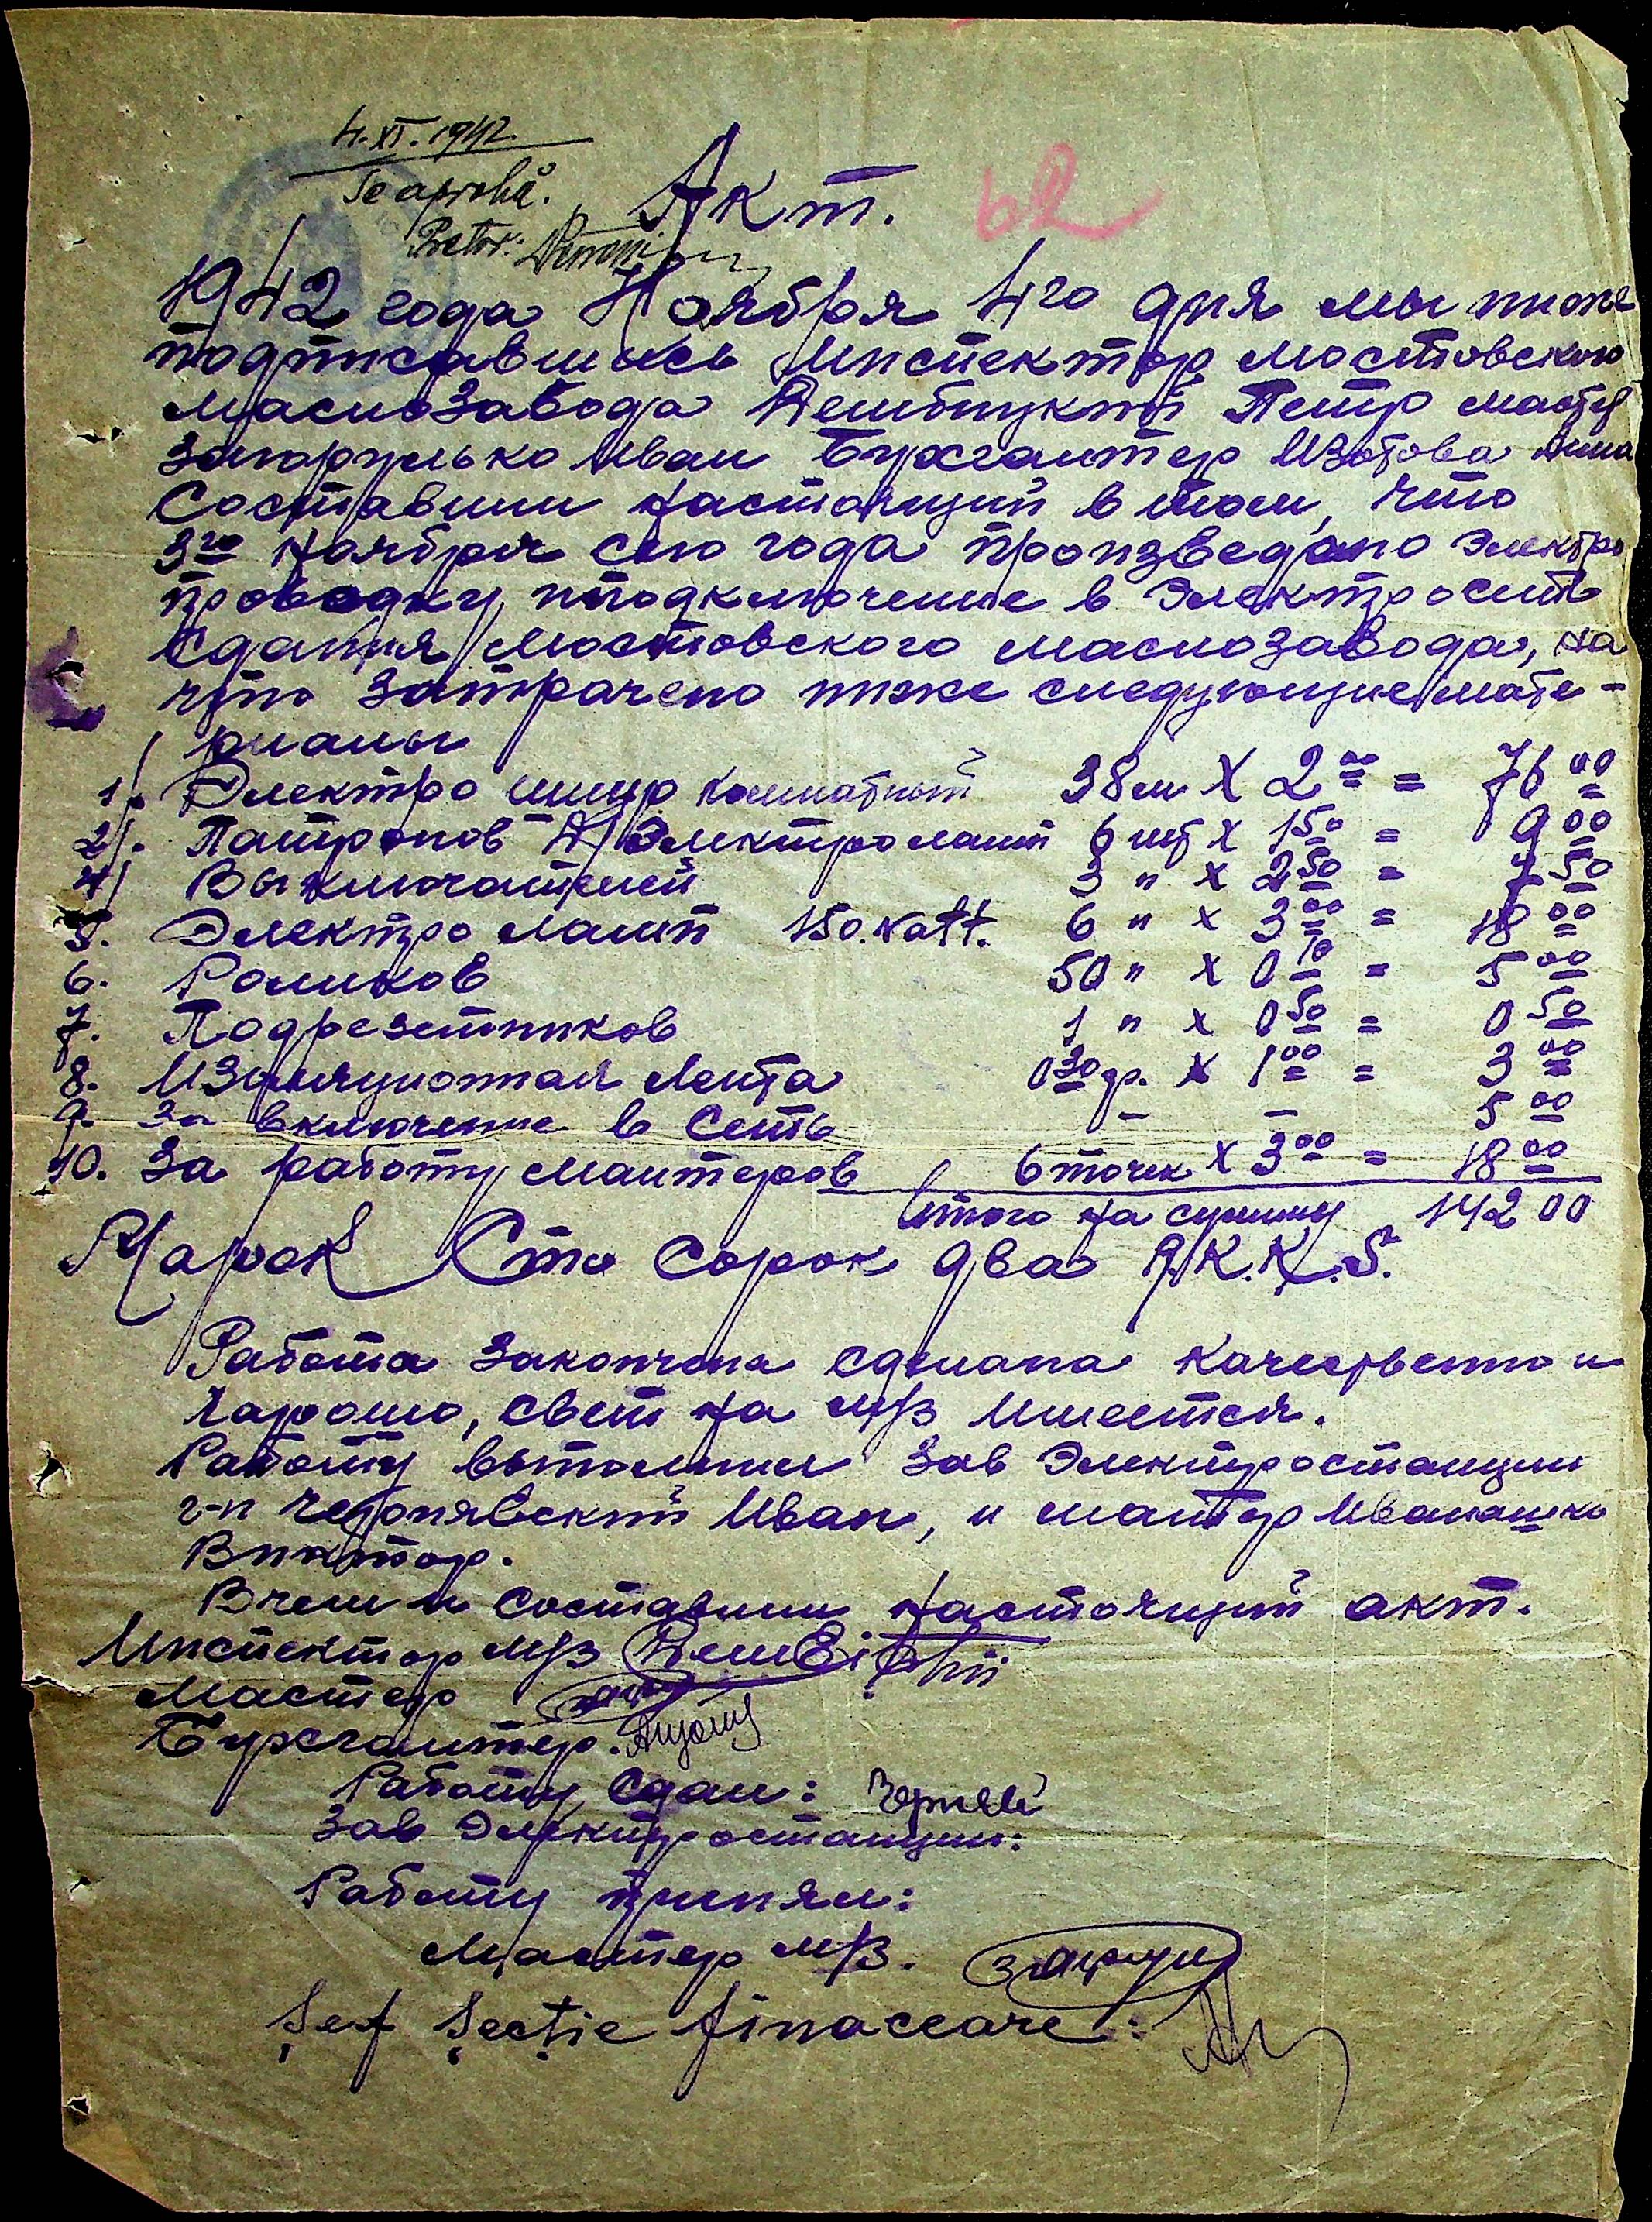 4.XI.1942.
Se aprobă.
Pretor:
Акт. 62
1942 года Ноября 4го дня мы ниже
подписавшись Инспектор Мостовского
Маслозавода Дембицкий Петр мастер
Загорулько Иван Бухгалтер Изотова Анна
Составили настоящий в том, что
3го Ноября сего года произведено Электро
проводку, и подключение в Электросеть
Сдания Мостовского маслозавода, на
что затрачено ниже следующие мате-
риалы
1/. Электро шнур комнатный 38 м X 2 00 = 76 00
2/. Патронов Д/Электроламп 6 шт X 1 50 = 9 00
4/ Выключателей 3 " X 2 50 = 7 50
5. Электро Ламп 150. Watt. 6 " X 3 00 = 18 00
6. Роликов 50 " X 0 10 = 5 00
7. Подрезетников 1 " X 0 50 = 0 50
8. Изоляционная Лента 0 30 гр. X 1 00 = 3 00
9. За включение в Сеть — — 5 00
10. За работу Мантеров 6 точек X 3 00 = 18 00
Итого на сумму 142 00
Марок Сто Сорок два R.K.K.S.
Работа Закончена сделана Качественно и
Харошо, свет на м/з Имеется.
Работу выполнил Зав Электростанции
г-н Чернявский Иван, и мантер Иванашко
Виктор.
В чем и Составили настоящий акт.
Инспектор м/з
Мастер
Бухгалтер.
Работу Сдал: Черняв
Зав Электростанции:
Работу принял:
Мастер м/з. Загору
Șef Secție finaceare: